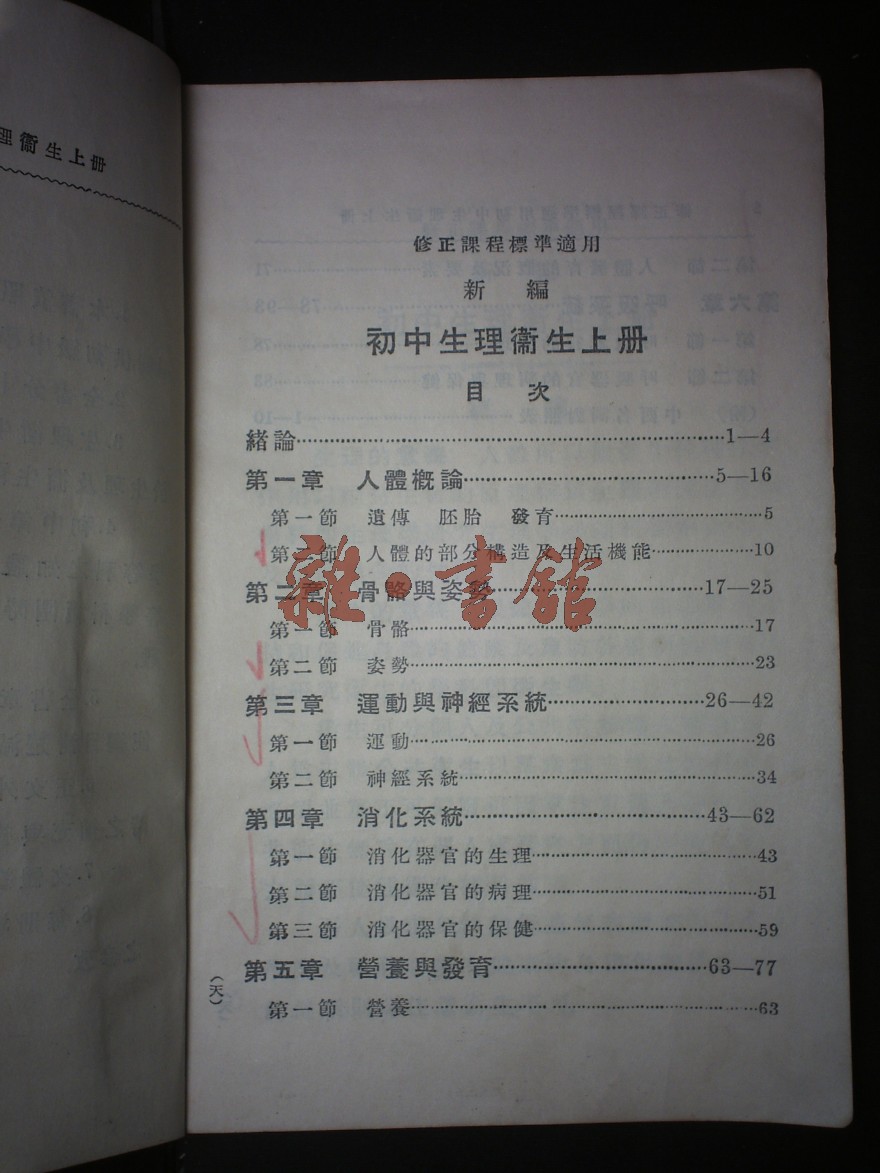 理衞生上册
修正課程標準適用
新編
初中生理衞生上册
目次
緒論……1—4
第一章 人體概論……5—16
第一節 遺傳 胚胎 發育……5
第二節 人體的部分構造及生活機能……10
第二章 骨骼與姿勢……17—25
第一節 骨骼……17
第二節 姿勢……23
第三章 運動與神經系統……26—42
第一節 運動……26
第二節 神經系統……34
第四章 消化系統……43—62
第一節 消化器官的生理……43
第二節 消化器官的病理……51
第三節 消化器官的保健……59
第五章 營養與發育……63—77
第一節 營養……63
(天)
雜·書館